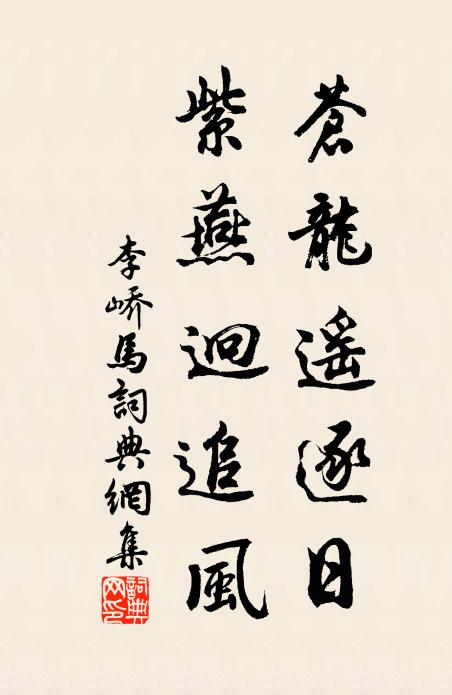 蒼龍遥逐日
紫燕迥追風
李嶠馬詞典網集
詞典网印